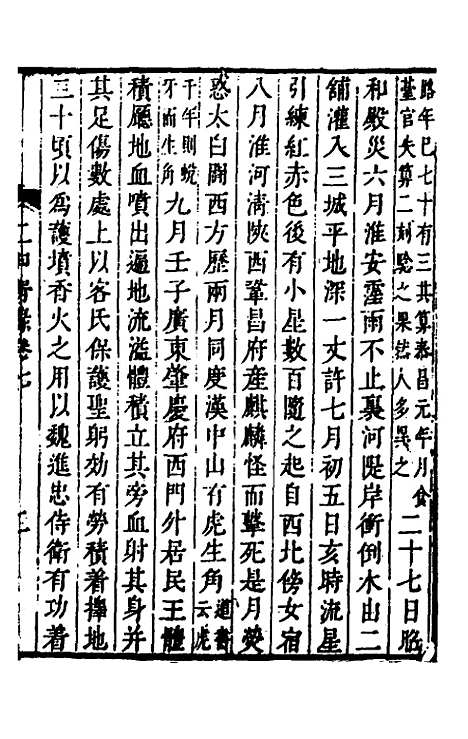 路年已七十有三其算泰昌元年月食
臺官失算二刻驗之果然人多異之
二十七日昭
和殿災六月淮安霪雨不止裏河隄岸衝倒水山二
舖灌入三城平地深一丈許七月初五日亥時流星
引練紅赤色後有小星數百隨之起自西北傍女宿
八月淮河淸陝西鞏昌府産麒麟怪而擊死是月熒
惑太白鬪西方歷兩月同度漢中山有虎生角
道書云虎
千年則蛻
牙而生角
九月壬子廣東肇慶府西門外居民王體
積廳地血噴出遍地流溢體積立其旁血射其身并
其足傷數處上以客氏保護聖躬効有勞積着擇地
三十頃以爲護墳香火之用以魏進忠侍衛有功着
卷七
三